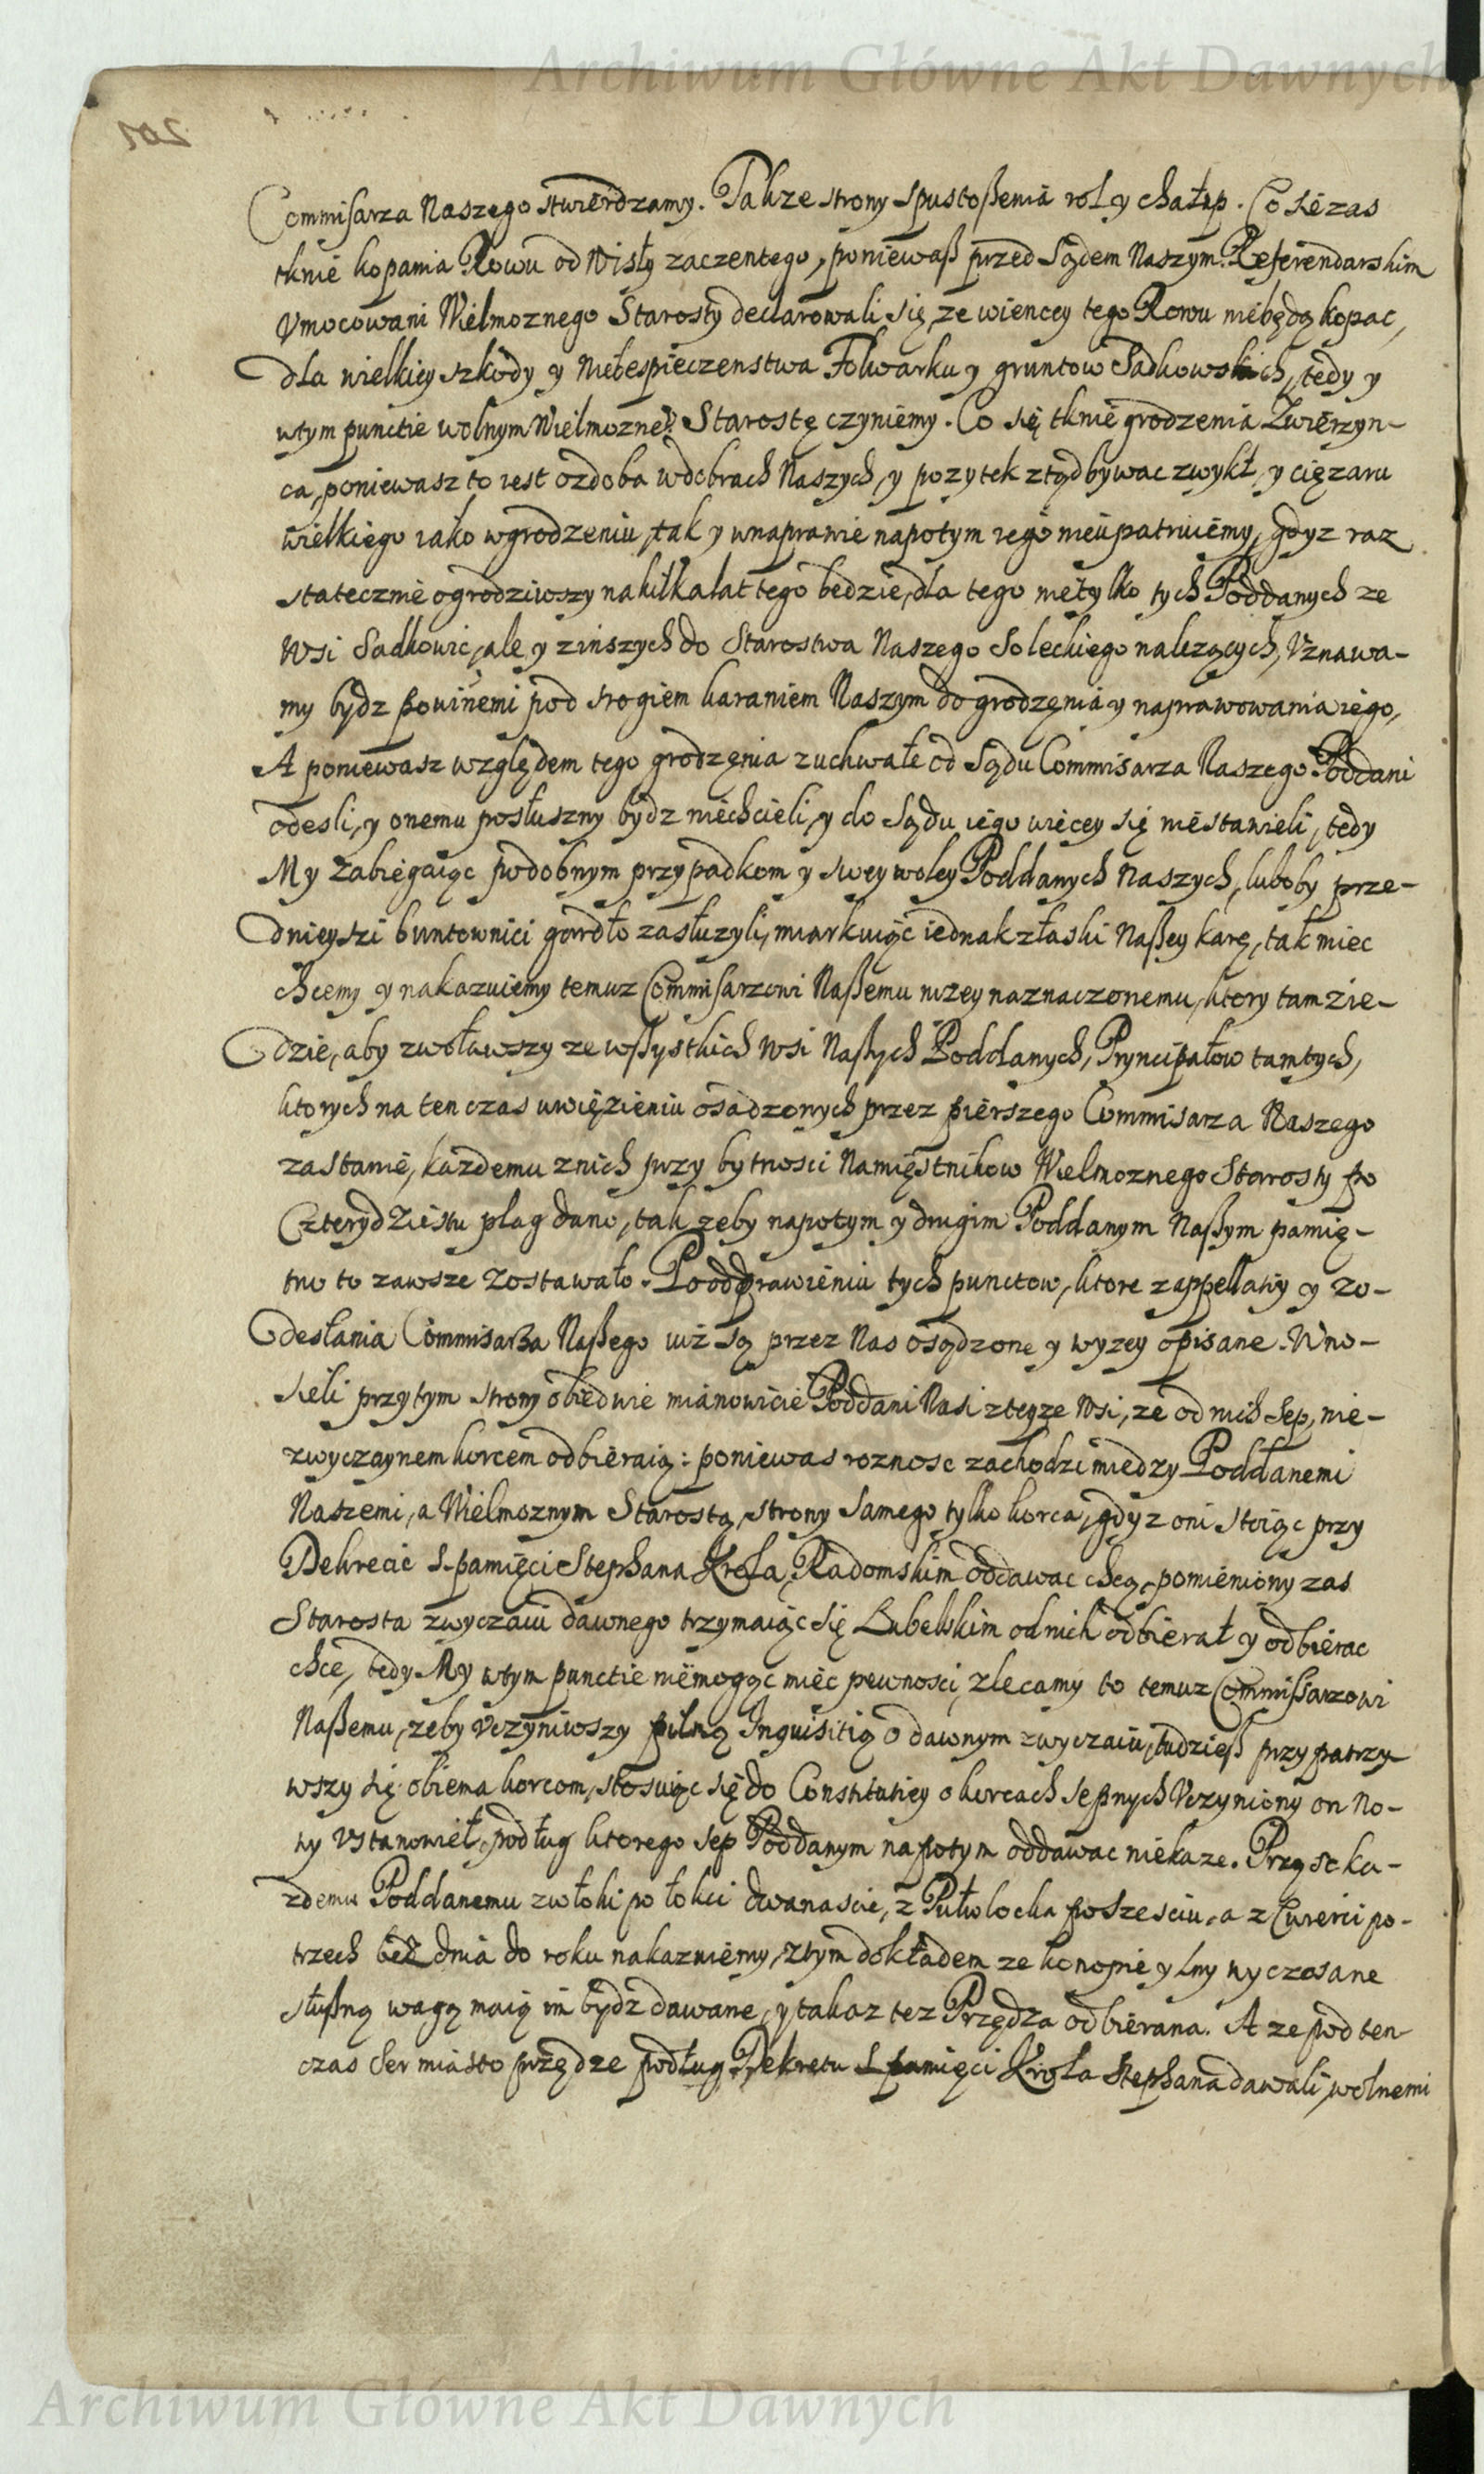 Archiwum Główne Akt Dawnych
201
Commisarza Naszego stwierdzamy. Takze strony spustoszenia rol y chałup. Co sie zas
tknie kopania Rowu od Wisły zaczentego, poniewasz przed Sądem Naszym Referendarskim
Vmocowani Wielmoznego Starosty declarowali się, ze wiencey tego Rowu niebędą kopac,
dla wielkiey szkody y niebespieczenstwa Folwarku y gruntow Sadkowskich, tedy y
wtym punctie wolnym Wielmozneº Starostę czyniemy. Co się tknie grodzenia Zwierzyn-
ca, poniewasz to iest ozdoba wdobrach Naszych, y pozytek ztąd bywac zwykł, y cięzaru
wielkiego iako wgrodzeniu, tak y wnaprawie napotym iego nieupatruiemy, gdyz raz
statecznie ogrodziwszy nakilkalat tego bedzie, dla tego nietylko tych Poddanych ze
Wsi Sadkowic, ale y zinszych do Starostwa Naszego Soleckiego nalezących, Vznawa-
my bydz powinemi pod srogiem karaniem Naszym do grodzęnia y naprawowania iego,
A poniewasz względem tego grodzęnia zuchwałe od Sądu Commisarza Naszego Poddani
odesli, y onemu posłuszny bydz niechcieli, y do Sądu iego wiecey się niestawieli, tedy
My zabiegaiąc podobnym przypadkom y swey woley Poddanych Naszych, luboby prze-
dnieyszi buntownici gardło zasłuzyli, miarkuiąc iednak złaski Naszey karę, tak miec
chcemy y nakazuiemy temuz Commisarzowi Naszemu nizey naznaczonemu, ktory tam zie-
dzie, aby zwoławszy ze wszystkich Wsi Naszych Poddanych, Pryncipałow tamtych,
ktorych na ten czas uwięzieniu osadzonych przez pierszego Commisarza Naszego
zastanie, kazdemu znich przy bytnosci Namięstnikow Wielmoznego Starosty po
Czterydziestu plag dano, tak zeby napotym y drugim Poddanym Naszym pamię-
tno to zawsze zostawało. Po odprawieniu tych punctow, ktore zappellatiy y zo-
desłania Commisarza Naszego iuż są przez Nas osądzone y wyzey opisane. Wno-
sieli przytym strony obiedwie mianowicie Poddani Nasi zteyze Wsi, ze od nich sep, nie-
zwyczaynem korcem odbieraią: poniewas roznosc zachodzi miedzy Poddanemi
Naszemi, a Wielmoznym Starostą, strony samego tylko korca, gdyz oni stoiąc przy
Dekrecie S. pamięci Stephana Krola, Radomskim oddawac chcą, pomieniony zas
Starosta zwyczaiu dawnego trzymaiąc się Lubelskim od nich odbierał y odbierac
chce, tedy My wtym punctie niemogąc miec pewnosci, zlecamy to temuz Commissarzowi
Naszemu, zeby Vczyniwszy pilną Inquisitią o dawnym zwyczaiu, tudziesz przypatrzy
wszy się obiema korcom, stosuiąc się do Constitutiey o korcach sepnych Vczyniony on No-
wy Vstanowieł, podług ktorego sep Poddanym napotym oddawac niekaze. Prząsc ka-
zdemu Poddanemu zwłoki po łokci dwanascie, z Pułwłocka poszesciu, a z Cwierci po-
trzech bez dnia do roku nakazuiemy, ztym dokładem ze konopie y lny wyczosane
słuszną wagą maią im bydz dawane, y takaz tez Przędza odbierana. A ze pod ten
czas Ser miasto przędze podług Dekretu S. pamięci Krola Stephana dawali, wolnemi
Archiwum Główne Akt Dawnych